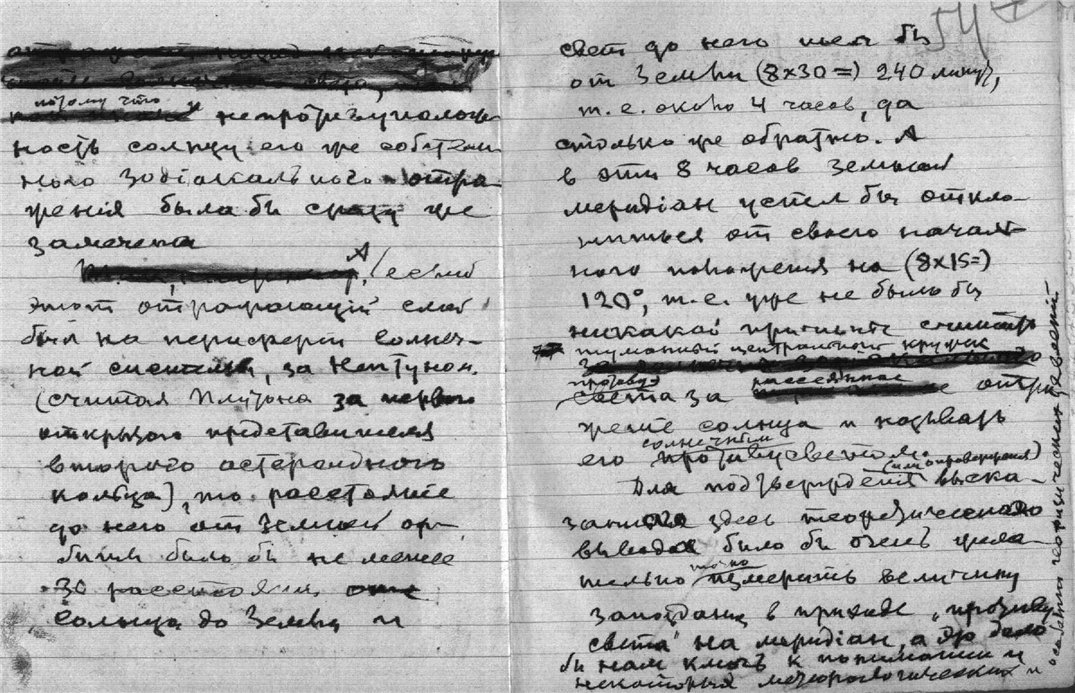 потому что
и непротивуполож-
ность солнцу его же собствен-
ного зодіакальнаго отра-
женія была бы сразу же
замечена
А если б
этот отражающій слой
был на периферіи солнеч-
ной системы, за Нептуном.
(считая Плутона за первого
открытого представителя
второго астероидного
кольца), то расстояніе
до него от Земной ор-
биты было бы не менее
30 расстояній
Солнца до Земли и
54
свет до него шел бы
от Земли (8x30=) 240 минут,
т. е. около 4 часов, да
столько же обратно. А
в эти 8 часов земной
меридіан успел бы откло-
ниться от своего началь-
ного положения на (8x15=)
120°, т. е. уже не было бы
никакой причины считать
туманный центральный кружок
противу-
света за рассеянное отра-
жение солнца и называть
его солнечным противусветом.
(или опровержения)
Для подтверждения выска-
занного здесь теоретического
вывода было бы очень жела-
тельно точно измерить величину
запоздания в приходе "противу
света" на меридіан, а это дало
бы нам ключ к пониманию и
некоторых метеорологических и
особенно геофизических явленій